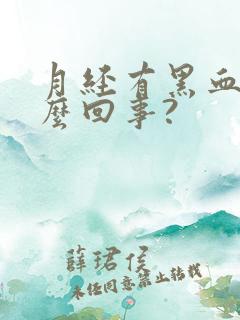 月经有黑血
麼回事?
薛珺侯
未经同意禁止转载